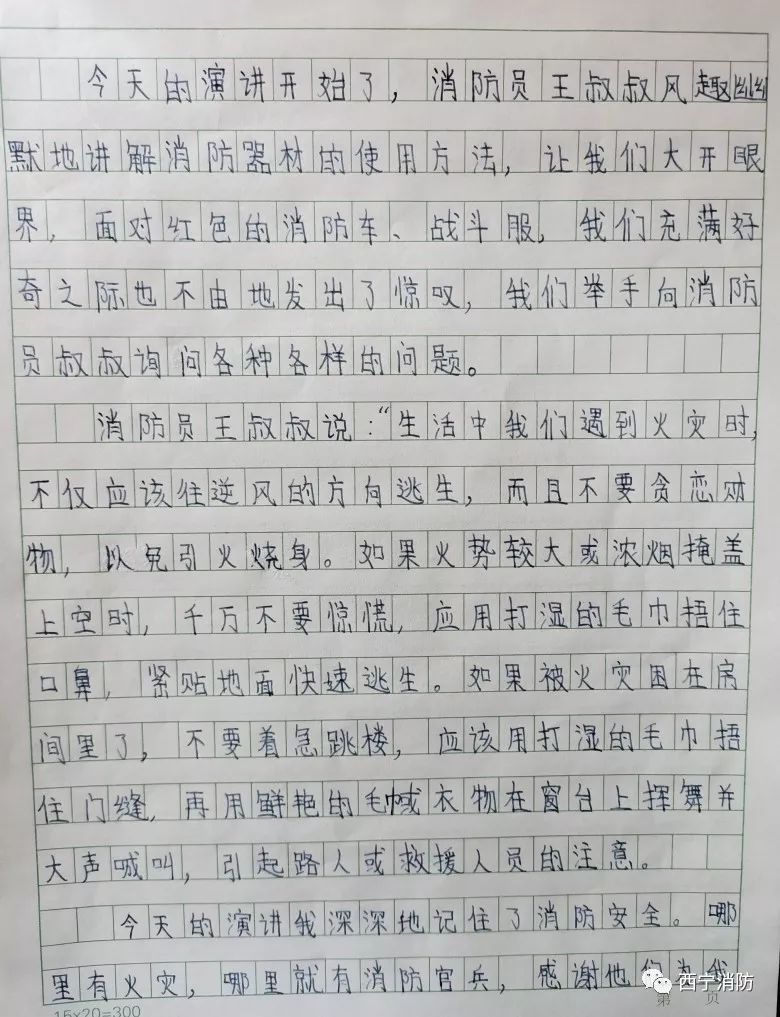 今天的演讲开始了，消防员王叔叔风趣幽
默地讲解消防器材的使用方法，让我们大开眼
界，面对红色的消防车、战斗服，我们充满好
奇之际也不由地发出了惊叹，我们举手向消防
员叔叔询问各种各样的问题。
消防员王叔叔说：“生活中我们遇到火灾时，
不仅应该往逆风的方向逃生，而且不要贪恋财
物，以免引火烧身。如果火势较大或浓烟掩盖
上空时，千万不要惊慌，应用打湿的毛巾捂住
口鼻，紧贴地面快速逃生。如果被火灾困在房
间里了，不要着急跳楼，应该用打湿的毛巾捂
住门缝，再用鲜艳的毛巾或衣物在窗台上挥舞并
大声喊叫，引起路人或救援人员的注意。
今天的演讲我深深地记住了消防安全。哪
里有火灾，哪里就有消防官兵，感谢他们为我
西宁消防
第 页
15×20=300